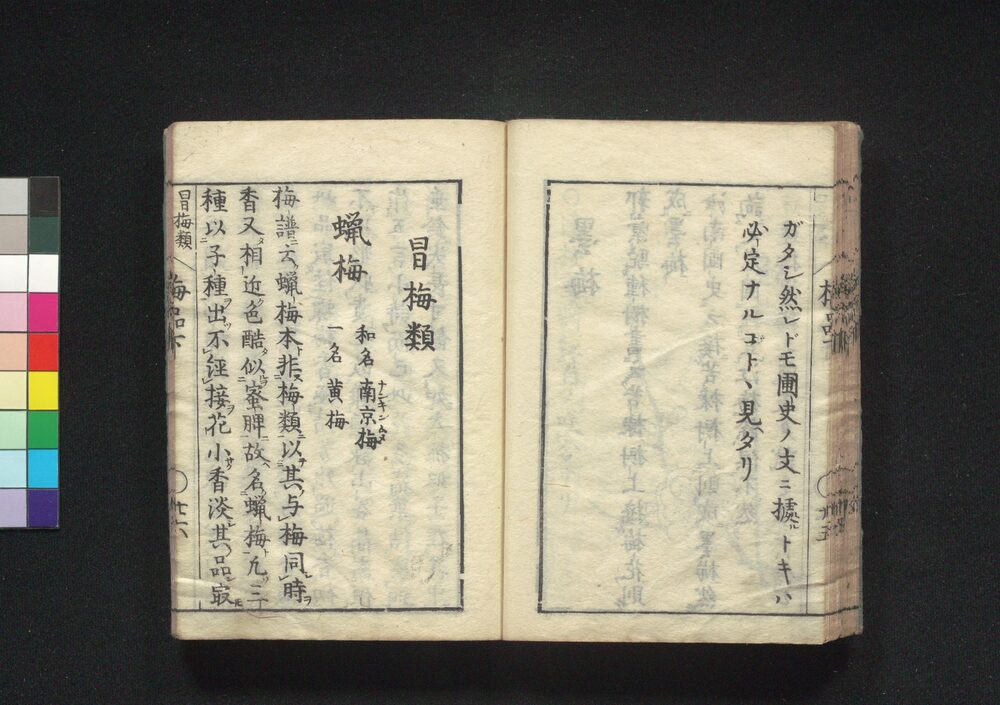 ガタシ然レドモ圃史ノ文ニ據ルトキハ
必定ナルコトヽ見ヘタリ
梅品下
冒梅類
蝋梅
和名 南京梅
ナンキンムメ
一名 黄梅
梅譜ニ云蝋梅本非梅類以其与梅同時
香又相近色酷似蜜脾故名蝋梅凡三
種以子種出不経接花小香淡其品㝡
冒梅類
梅品下
廿六